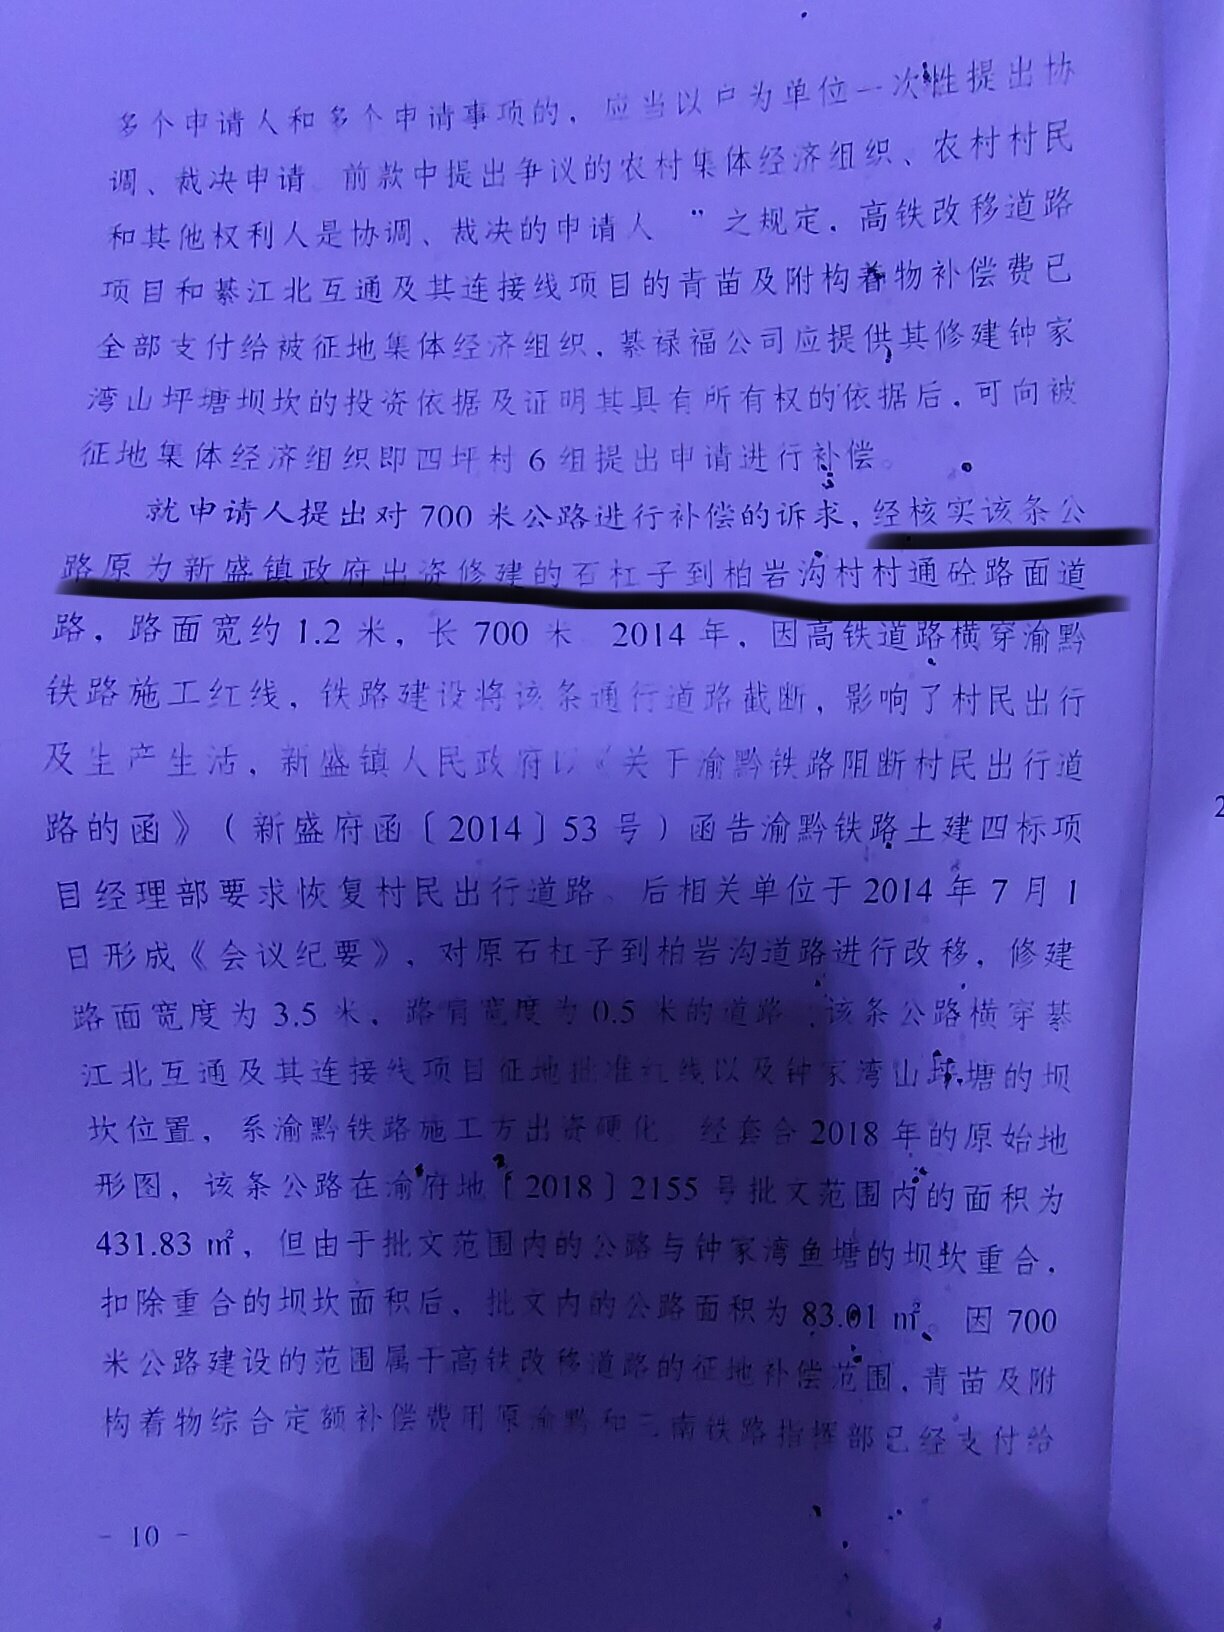 多个申请人和多个申请事项的，应当以户为单位一次性提出协
调、裁决申请。前款中提出争议的农村集体经济组织、农村村民
和其他权利人是协调、裁决的申请人 ”之规定，高铁改移道路
项目和綦江北互通及其连接线项目的青苗及附构着物补偿费已
全部支付给被征地集体经济组织，綦禄福公司应提供其修建钟家
湾山坪塘坝坎的投资依据及证明其具有所有权的依据后，可向被
征地集体经济组织即四坪村6组提出申请进行补偿。
就申请人提出对700米公路进行补偿的诉求，经核实该条公
路原为新盛镇政府出资修建的石杠子到柏岩沟村村通砼路面道
路，路面宽约1.2米，长700米。2014年，因高铁道路横穿渝黔
铁路施工红线，铁路建设将该条通行道路截断，影响了村民出行
及生产生活，新盛镇人民政府以《关于渝黔铁路阻断村民出行道
路的函》（新盛府函〔2014〕53号）函告渝黔铁路土建四标项
目经理部要求恢复村民出行道路。后相关单位于2014年7月1
日形成《会议纪要》，对原石杠子到柏岩沟道路进行改移，修建
路面宽度为3.5米，路肩宽度为0.5米的道路，该条公路横穿綦
江北互通及其连接线项目征地批准红线以及钟家湾山坪塘的坝
坎位置，系渝黔铁路施工方出资硬化。经套合2018年的原始地
形图，该条公路在渝府地〔2018〕2155号批文范围内的面积为
431.83㎡，但由于批文范围内的公路与钟家湾鱼塘的坝坎重合，
扣除重合的坝坎面积后，批文内的公路面积为83.01㎡。因700
米公路建设的范围属于高铁改移道路的征地补偿范围，青苗及附
构着物综合定额补偿费用原渝黔和三南铁路指挥部已经支付给
- 10 -
2